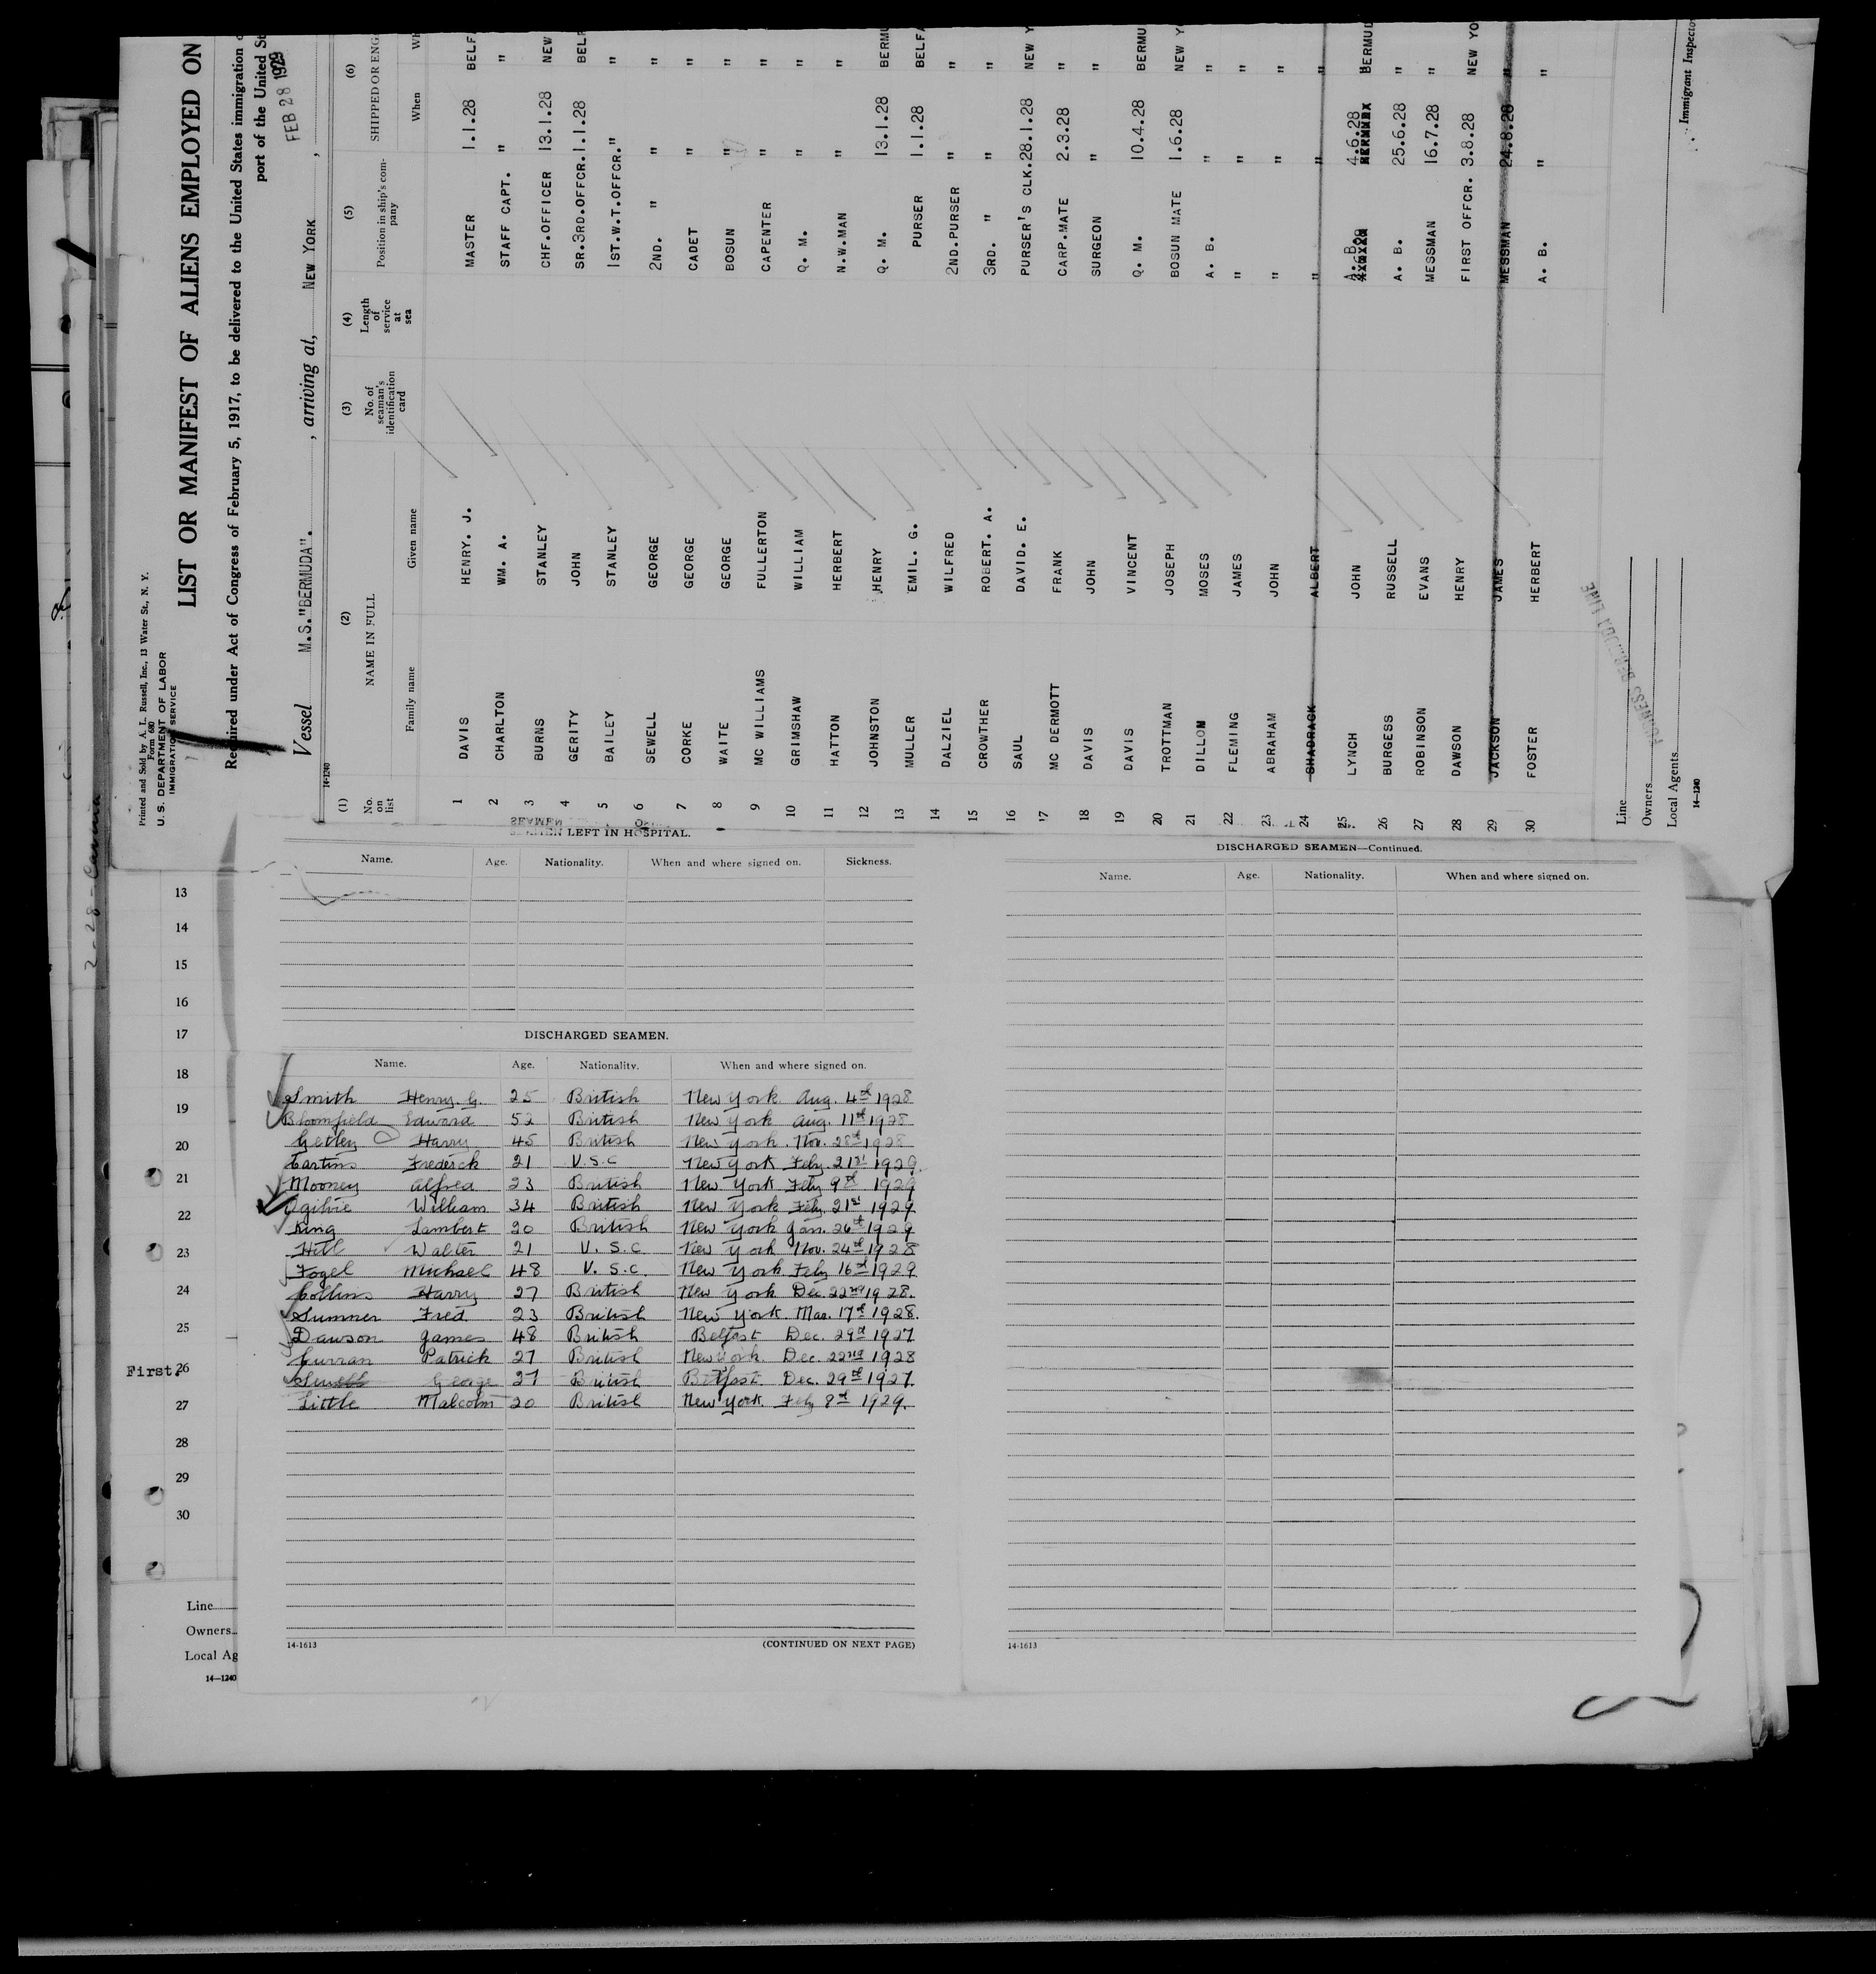 Printed and Sold by A. L. Russell, Inc., 13 Water St., N. Y.
Form 680
U. S. DEPARTMENT OF LABOR
IMMIGRATION SERVICE
LIST OR MANIFEST OF ALIENS EMPLOYED ON
Required under Act of Congress of February 5, 1917, to be delivered to the United States immigration
port of the United St
FEB 28 1929
Vessel M.S."BERMUDA". , arriving at, NEW YORK ,
14-1240
(1) (2) (3) (4) (5) (6)
No. on list NAME IN FULL No. of seaman's identification card Length of service at sea Position in ship's company SHIPPED OR ENG
Family name Given name When
1 DAVIS HENRY. J. MASTER 1.1.28 BELFA
2 CHARLTON WM. A. STAFF CAPT. " "
3 BURNS STANLEY CHF.OFFICER 13.1.28 NEW
4 GERITY JOHN SR.3RD.OFFCR.1.1.28 BELF
5 BAILEY STANLEY 1ST.W.T.OFFCR." "
6 SEWELL GEORGE 2ND. " " "
7 CORKE GEORGE CADET " "
8 WAITE GEORGE BOSUN " "
9 MC WILLIAMS FULLERTON CAPENTER " "
10 GRIMSHAW WILLIAM Q. M. " "
11 HATTON HERBERT N.W.MAN " "
12 JOHNSTON HENRY Q. M. 13.1.28 BERMU
13 MULLER EMIL. G. PURSER 1.1.28 BELFA
14 DALZIEL WILFRED 2ND.PURSER " "
15 CROWTHER ROBERT. A. 3RD. " " "
16 SAUL DAVID. E. PURSER'S CLK.28.1.28 NEW Y
17 MC DERMOTT FRANK CARP.MATE 2.3.28 "
18 DAVIS JOHN SURGEON " "
19 DAVIS VINCENT Q. M. 10.4.28 BERMU
20 TROTTMAN JOSEPH BOSUN MATE 1.6.28 NEW Y
21 DILLON MOSES A. B. " "
22 FLEMING JAMES " " "
23 ABRAHAM JOHN " " "
24 SHADRACK ALBERT " " "
25 LYNCH JOHN A. B. 4.6.28 BERMUD
26 BURGESS RUSSELL A. B. 25.6.28 "
27 ROBINSON EVANS MESSMAN 16.7.28 "
28 DAWSON HENRY FIRST OFFCR. 3.8.28 NEW YO
29 JACKSON JAMES MESSMAN 24.8.28 "
30 FOSTER HERBERT A. B. " "
Line
Owners
Local Agents
FURNESS BERMUDA LINE
Immigrant Inspector
14-1240
SEAMEN LEFT IN HOSPITAL.
Name. Age. Nationality. When and where signed on. Sickness.
DISCHARGED SEAMEN.
Name. Age. Nationality. When and where signed on.
Smith Henry G. 25 British New York Aug. 4th 1928
Bloomfield Edward 52 British New York Aug. 11th 1928
Harry 45 British New York Nov. 28th 1928
Frederick 21 U.S.C New York Feby. 21st 1929.
Mooney Alfred 23 British New York Feby 9th 1929
Ogilvie William 34 British New York Feby. 21st 1929
King Lambert 20 British New York Jan. 26th 1929
Hill Walter 21 U.S.C. New York Nov. 24th 1928
Fogel Michael 48 U.S.C. New York Feby 16th 1929
Collins Harry 27 British New York Dec. 22nd 1928.
Sumner Fred 23 British New York. Mar. 17th 1928.
Dawson James 48 British Belfast Dec. 29th 1927
Curran Patrick 27 British New York. Dec. 22nd 1928
Sewell George 27 British Belfast Dec. 29th 1927.
Little Malcolm 20 British New York. Feby 8th 1929.
14-1613 (CONTINUED ON NEXT PAGE)
DISCHARGED SEAMEN—Continued.
Name. Age. Nationality. When and where signed on.
14-1613
13
14
15
16
17
18
19
20
21
22
23
24
25
First. 26
27
28
29
30
Line
Owners
Local Ag
14-1240